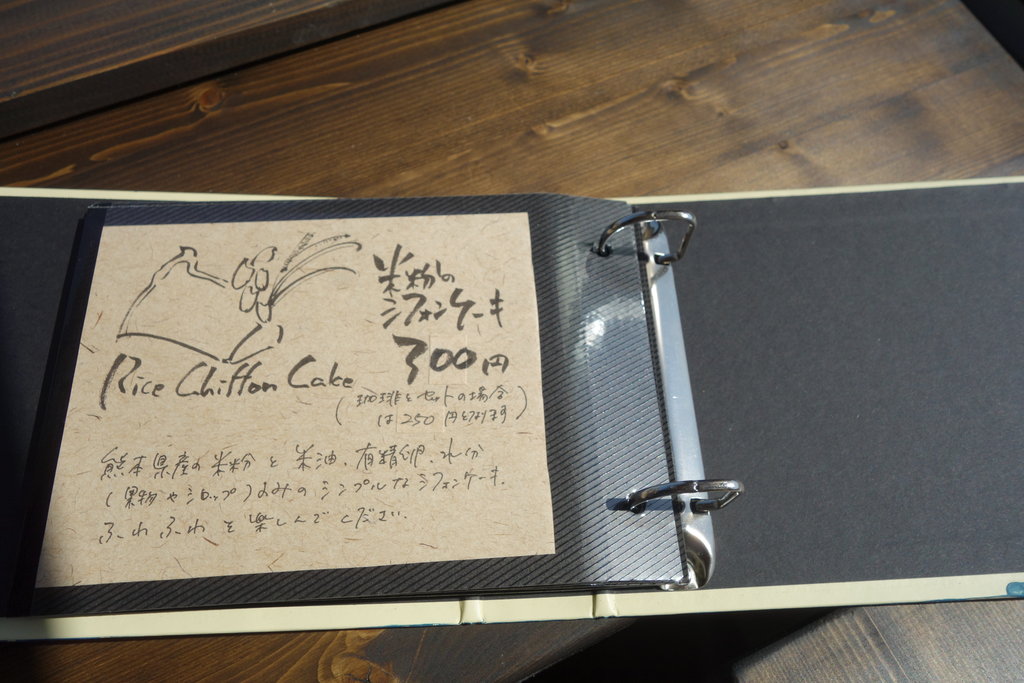 米粉の
シフォンケーキ
300円
Rice Chiffon Cake
(珈琲とセットの場合
は250円となります)
熊本県産の米粉と米油、有精卵、水分
(果物やシロップ)のみのシンプルなシフォンケーキ。
ふわふわを楽しんでください。